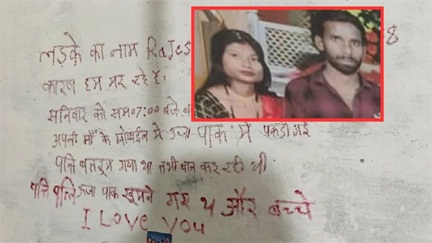 लड़के का नाम Rajes
8
कारण हम मर रहे हैं।
सनिवार को सम 07:00 बजे
अपनी माँ के मोबाईल में ऊर्जा पार्क में पकड़ी गई
पति बाथरूम गया था तभी बात कर रही थी
पति पत्नि ऊर्जा पार्क घुमने गए थे और बच्चे
I Love You